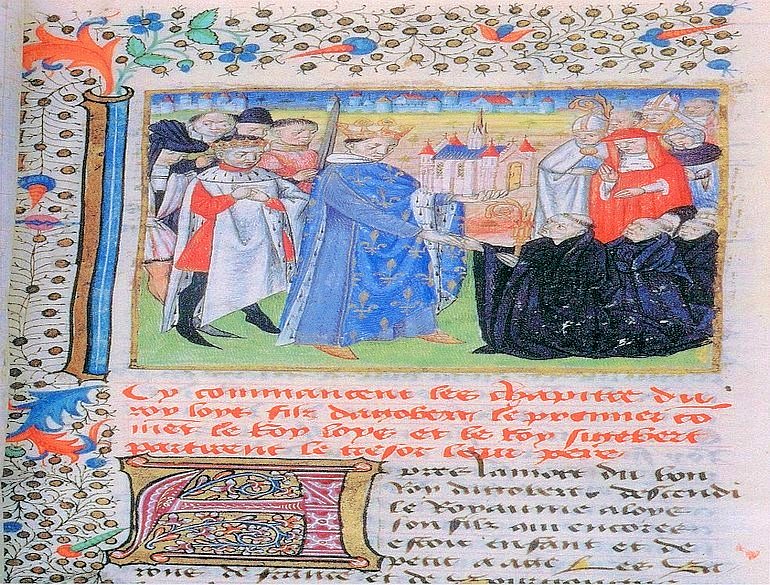 Cy commancent les chapitre du
roy loys filz dagobert le premier co
met le Roy loys et le Roy sigebert
partirent le tresor leur pere
Apres la mort du bon
Roy dagobert descendi
le Royaume a loys
son filz qui encores
estoit enfant et de
petit aage Les
rone de france et de